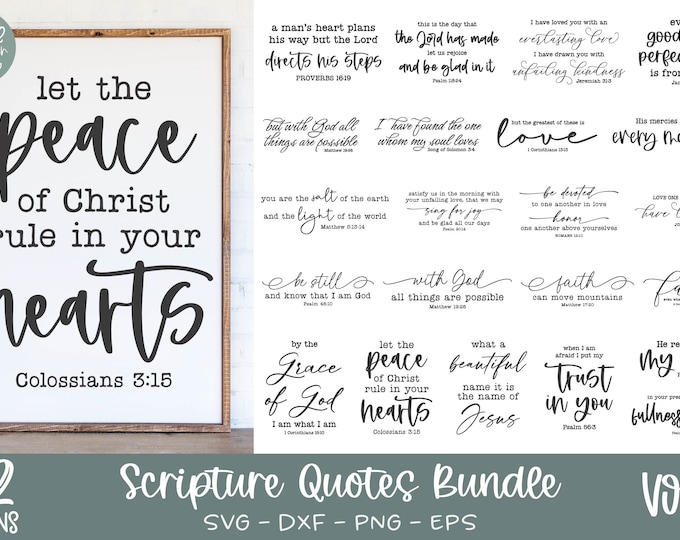 let the
peace
of Christ
rule in your
hearts
Colossians 3:15
a man's heart plans
his way but the Lord
directs his steps
PROVERBS 16:9
this is the day that
the Lord has made
let us rejoice
and be glad in it
Psalm 118:24
I have loved you with an
everlasting love
I have drawn you with
unfailing kindness
Jeremiah 31:3
good
perfec
is from
but with God all
things are possible
Matthew 19:26
I have found the one
whom my soul loves
Song of Solomon 3:4
but the greatest of these is
love
1 Corinthians 13:13
His mercies
every mo
you are the salt of the earth
and the light of the world
Matthew 5:13-14
satisfy us in the morning with
your unfailing love, that we may
sing for joy
and be glad all our days
Psalm 90:14
be devoted
to one another in love
honor
one another above yourselves
ROMANS 12:10
LOVE ONE
be still
and know that I am God
Psalm 46:10
with God
all things are possible
Matthew 19:26
faith
can move mountains
Matthew 17:20
by the
Grace
of God
I am what I am
1 Corinthians 15:10
let the
peace
of Christ
rule in your
hearts
Colossians 3:15
what a
beautiful
name it is
the name of
Jesus
when I am
afraid I put my
Trust
in You
Psalm 56:3
He re
my
in your pre
fullness
2
NS
Scripture Quotes Bundle
SVG - DXF - PNG - EPS
VO